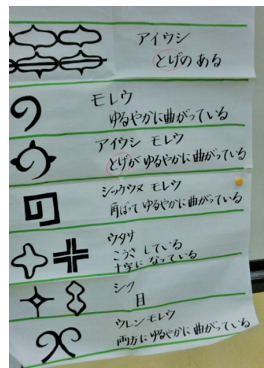 アイウシ
とげのある
モレウ
ゆるやかに曲がっている
アイウシ モレウ
とげがゆるやかに曲がっている
シッケウヌ モレウ
角ばってゆるやかに曲がっている
ウタサ
こうさしている
十字になっている
シク
目
ウレンモレウ
両方にゆるやかに曲がっている